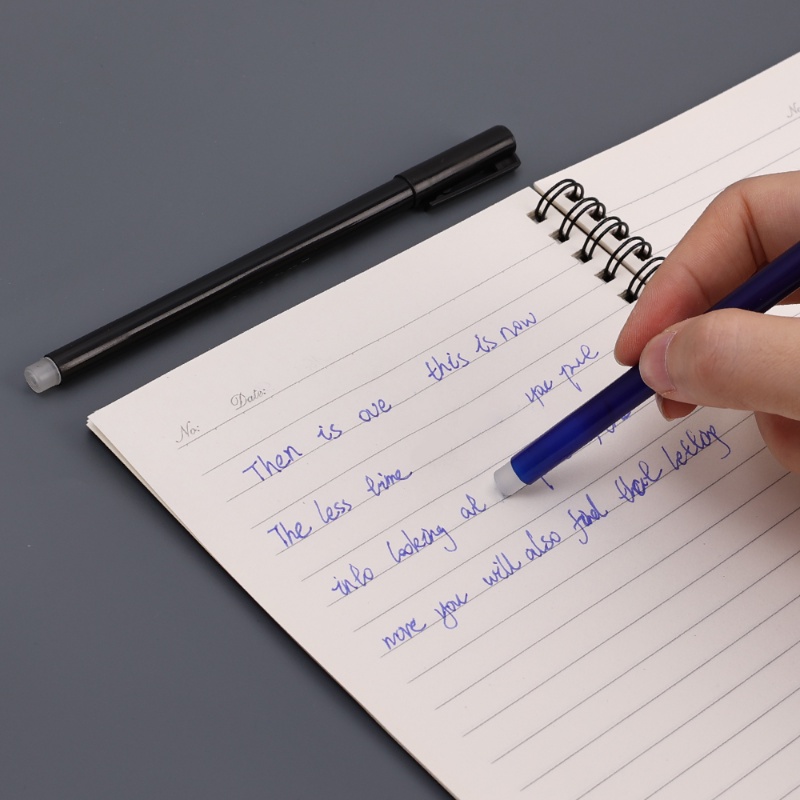 No:
Date:
Then is ove this is now
The less time you pue
into looking at
more you will also find that letting